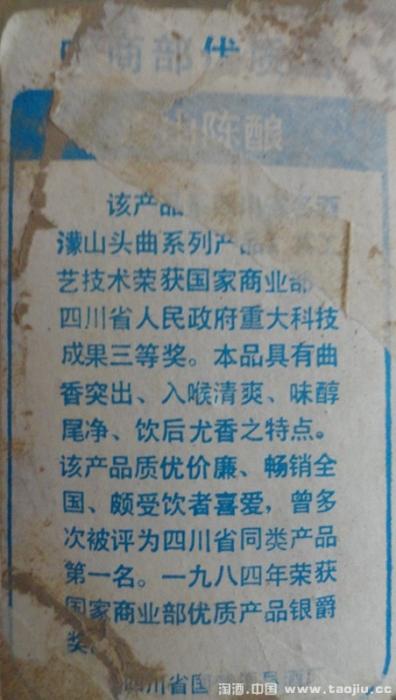 商部优质
山陈酿
该产品 酒
濛山头曲系列产品 工
艺技术荣获国家商业部
四川省人民政府重大科技
成果三等奖。本品具有曲
香突出、入喉清爽、味醇
尾净、饮后尤香之特点。
该产品质优价廉、畅销全
国、颇受饮者喜爱，曾多
次被评为四川省同类产品
第一名。一九八四年荣获
国家商业部优质产品银爵
奖。
四川省国 酒
淘酒.中国 www.taojiu.cc